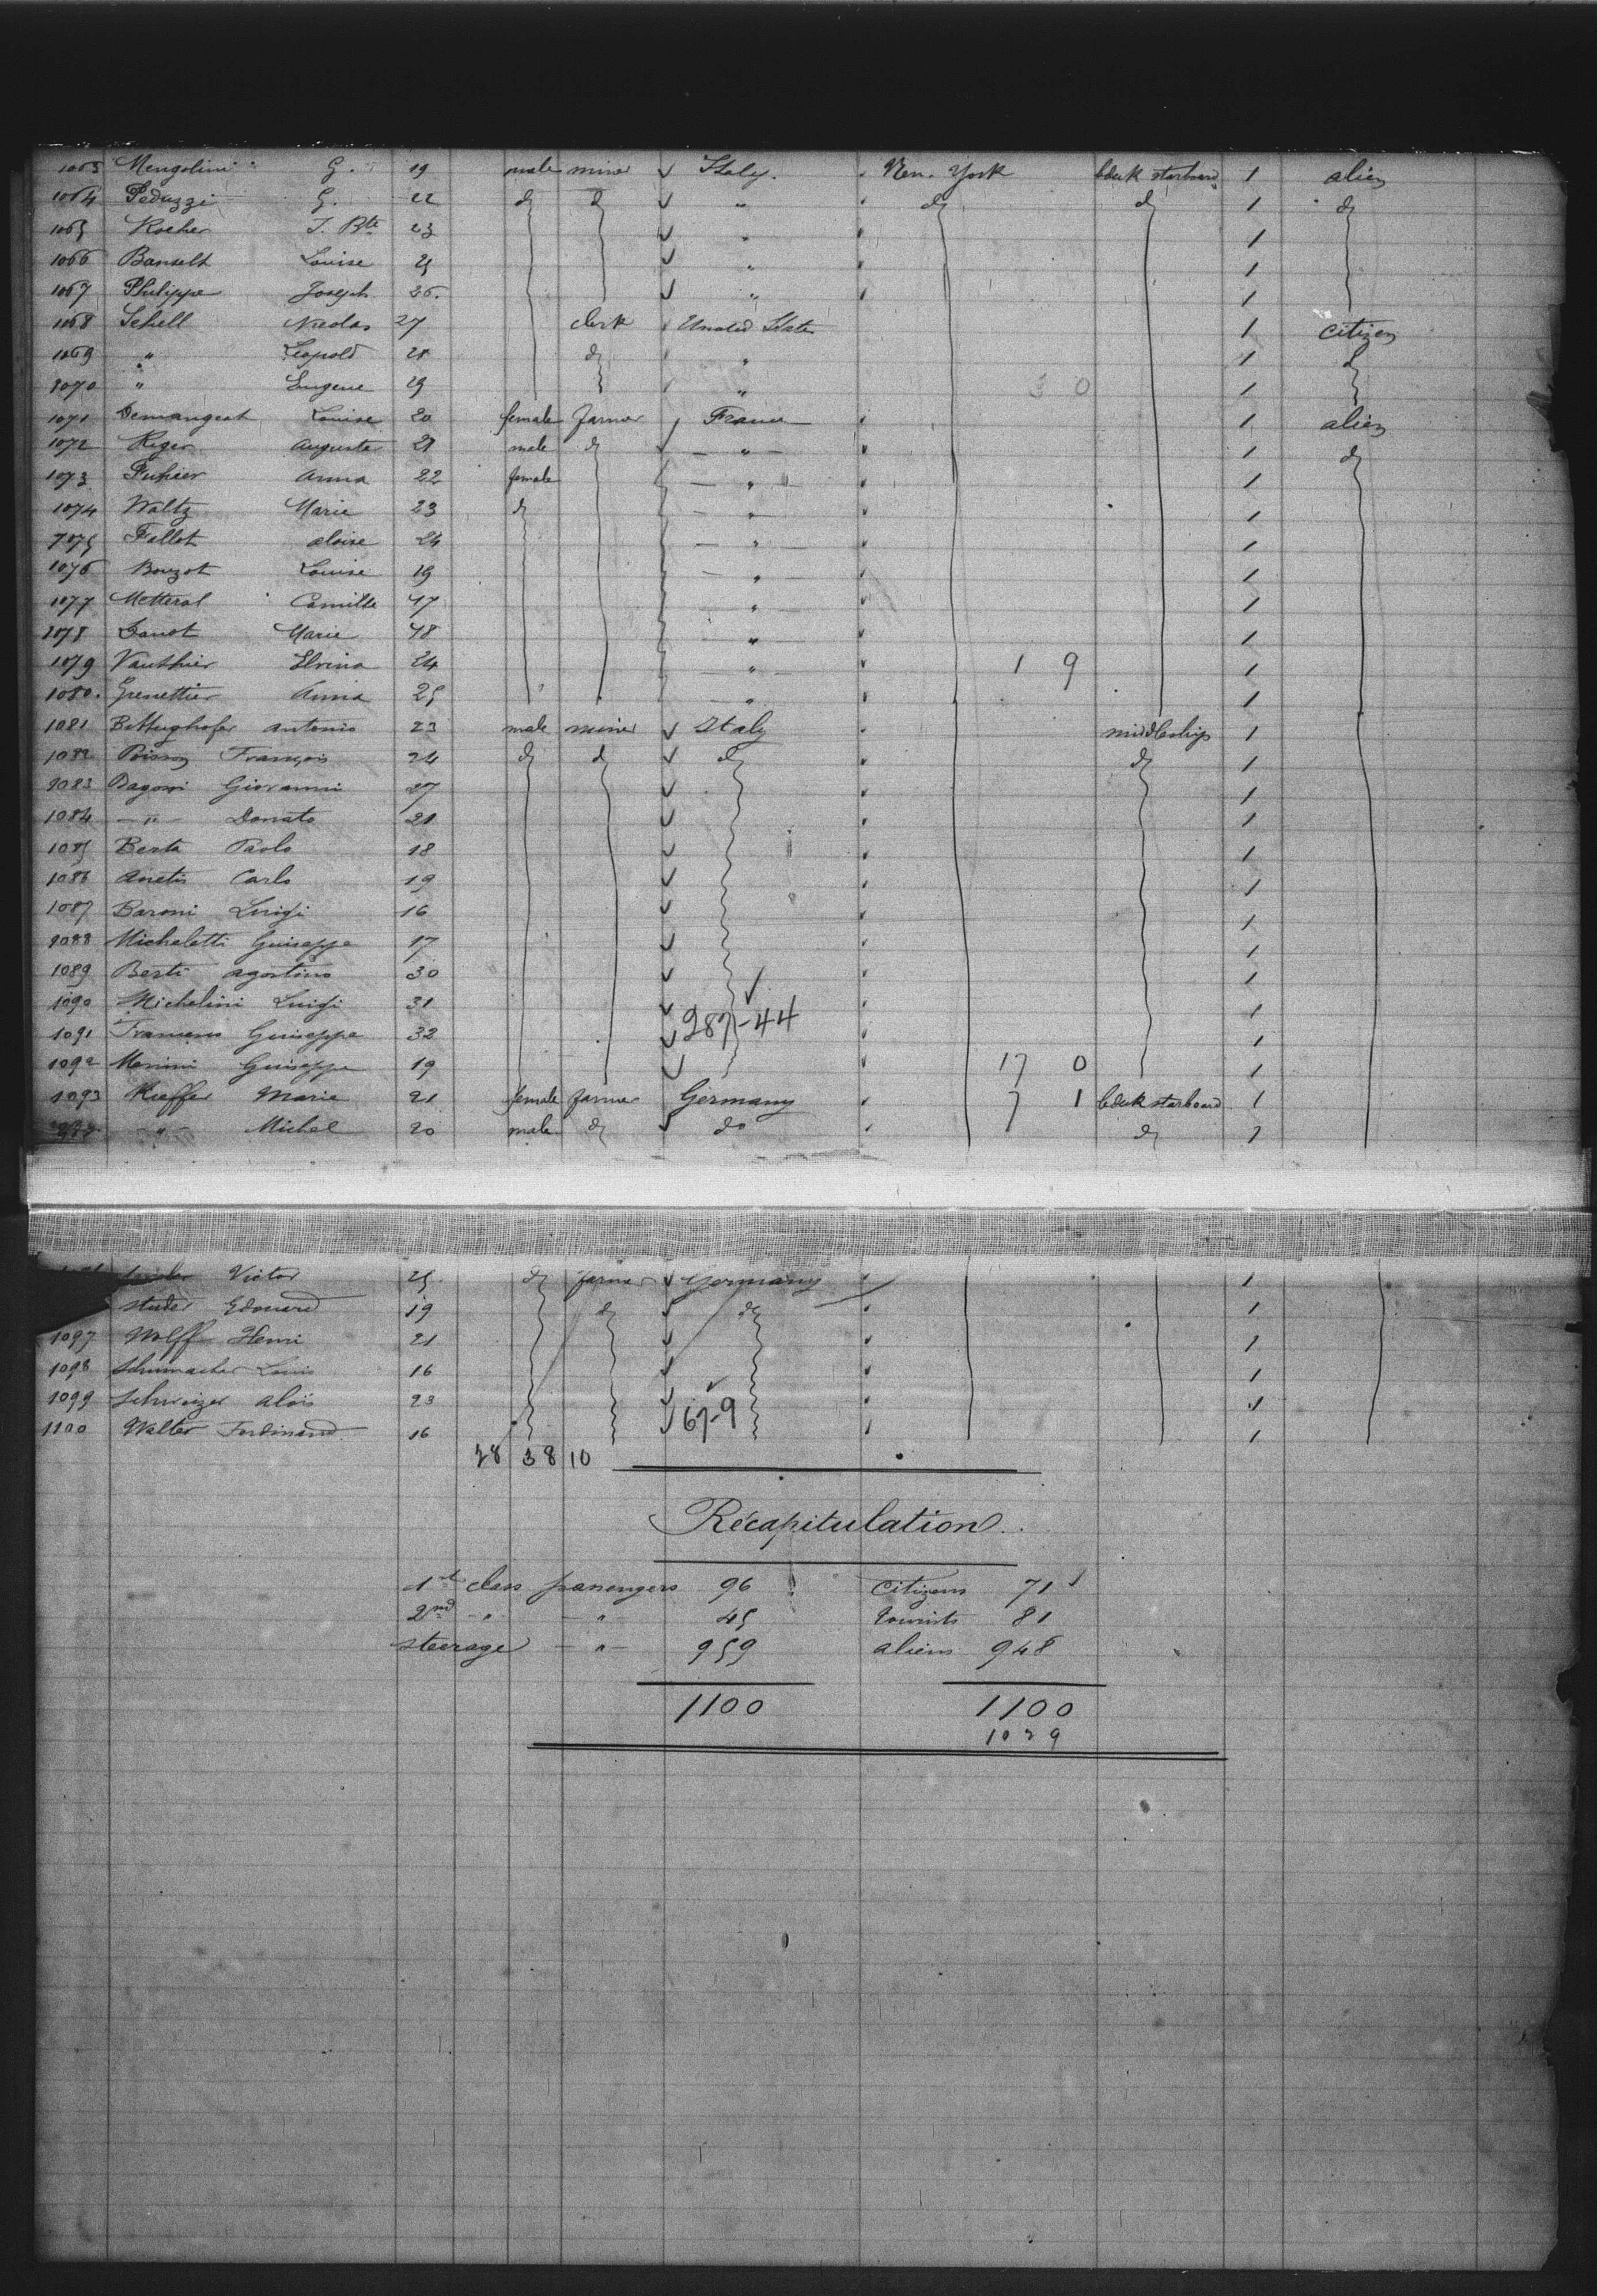 1063 Mengolini G. 19 male miner Italy. New-York bdeck starboard 1 alien
1064 Peduzzi G. 22 d " d d 1 d
1065 Rocher J. Bte 23 " 1
1066 Louise 25 " 1
1067 Philippe Joseph 26. " 1
1068 Schell Nicolas 27 clerk United States 1 citizen
1069 " Leopold 28 d " 1 d
1070 " Eugene 29 " 1
1071 Demangeat Louise 20 female farmer France 1 alien
1072 Riger Auguste 21 male d " 1 d
1073 Anna 22 female " 1
1074 Waltz Marie 23 d " 1
1075 Fallot aloise 24 " 1
1076 Bouzot Louise 19 " 1
1077 Metteral Camille 47 " 1
1078 Marie 48 " 1
1079 Vauthier Elvina 24 " 1 9 1
1080. Grenettier Anna 25 " 1
1081 antonio 23 male miner Italy middleship 1
1082 Poisson François 24 d d d d 1
1083 Giovanni 27 1
1084 " Donato 21 1
1085 Berta Paolo 18 1
1086 Carlo 19 1
1087 Baroni Luigi 16 1
1088 Micheletti Guiseppe 17 1
1089 Berti agostino 30 1
1090 Michelini Luigi 31 1
1091 Guiseppe 32 287-44 1
1092 Guiseppe 19 17 0 1
1093 Kieffer Marie 21 female farmer Germany 7 1 bdeck starboard 1
" Michel 20 male d do d 1
Victor 25. d farmer Germany 1
studer Edouard 19 d d 1
1097 Wolff Henri 21 1
1098 Schumacher Louis 16 1
1099 Schweizer aloïs 23 1
1100 Walter Ferdinand 16 67-9 1
28 38 10
Récapitulation.
1st class passengers 96 citizens 71
2nd " " 45 tourists 81
steerage " 959 aliens 948
1100 1100
1029